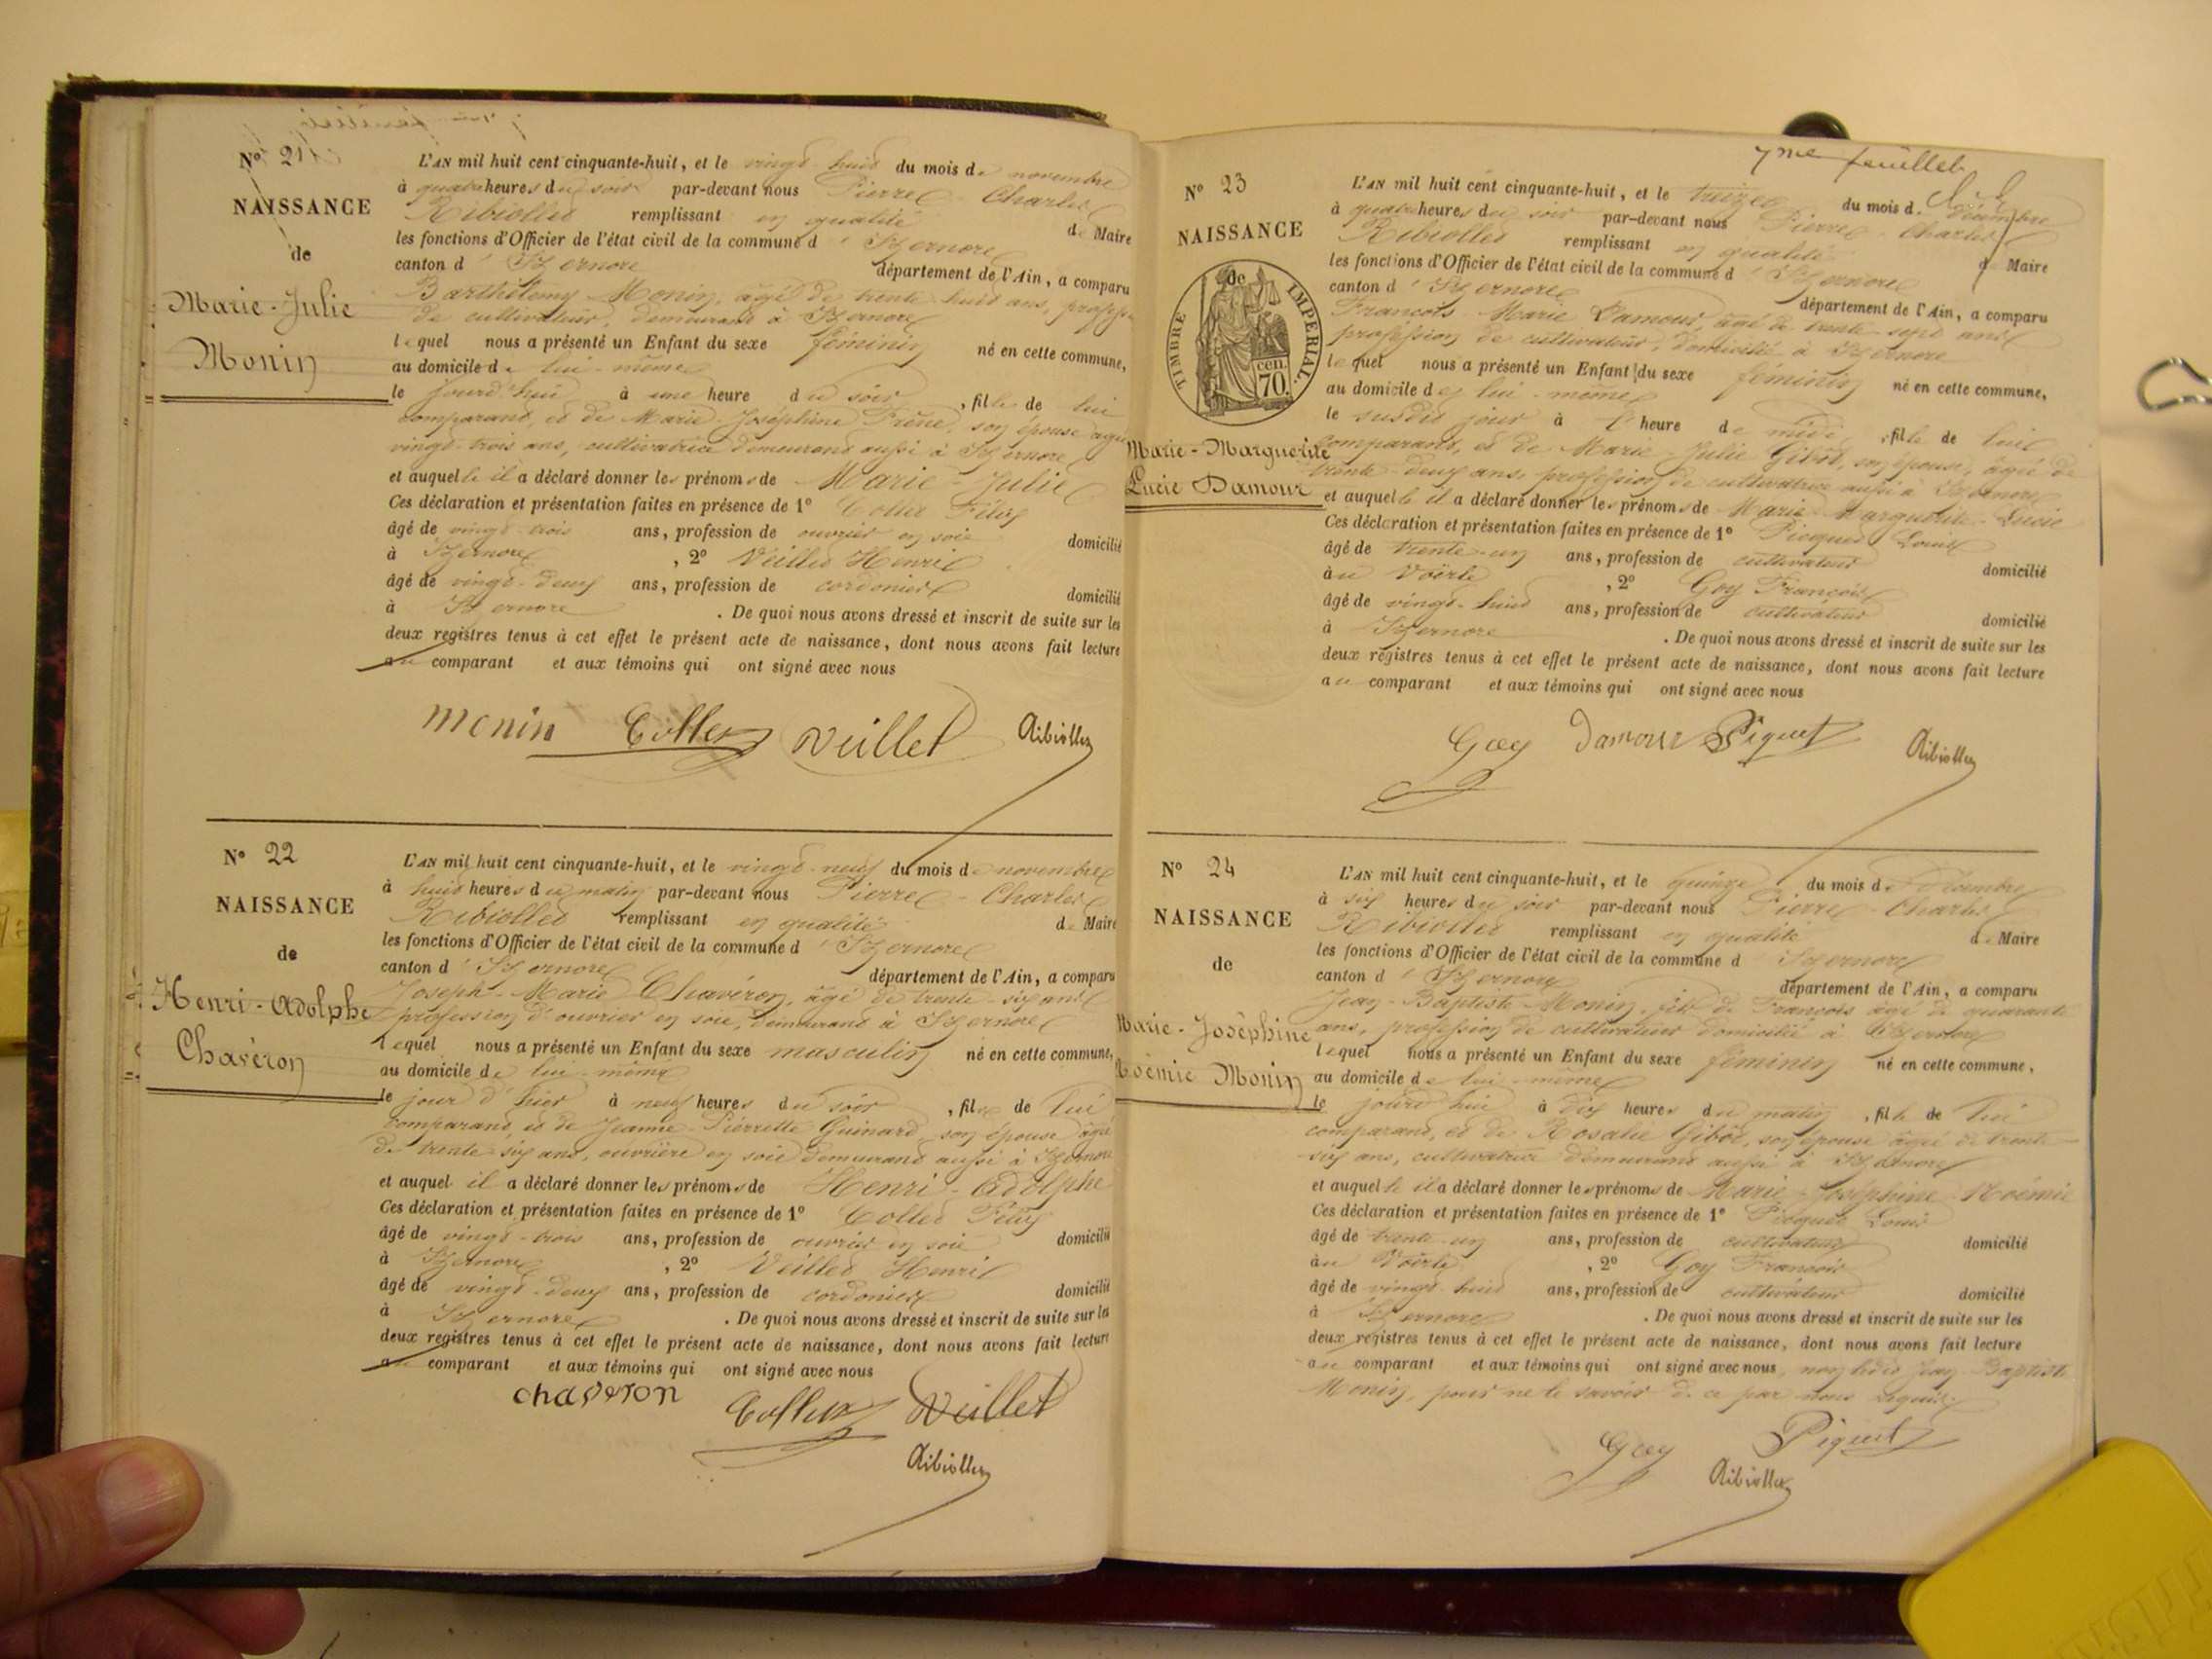 N° 21
NAISSANCE
de
Marie-Julie
Monin
L'AN mil huit cent cinquante-huit, et le vingt-huit du mois de novembre
à quatre heures du soir par-devant nous Pierre-Charles
Ribiollet remplissant en qualité de Maire
les fonctions d'Officier de l'état civil de la commune d'Izernore
canton d'Izernore département de l'Ain, a comparu
Barthélemy Monin, âgé de trente-huit ans, profession
de cultivateur, demeurant à Izernore
lequel nous a présenté un Enfant du sexe féminin né en cette commune,
au domicile de lui-même
le jourd'hui à une heure du soir, fille de lui
comparant, et de Marie-Joséphine son épouse âgée
vingt-trois ans, cultivatrice demeurant aussi à Izernore
et auquelle il a déclaré donner les prénoms de Marie-Julie
Ces déclaration et présentation faites en présence de 1°
âgé de vingt-trois ans, profession de ouvrier en soie domicilié
à Izernore, 2° Veillet Henri
âgé de vingt-deux ans, profession de cordonier domicilié
à Izernore. De quoi nous avons dressé et inscrit de suite sur les
deux registres tenus à cet effet le présent acte de naissance, dont nous avons fait lecture
au comparant et aux témoins qui ont signé avec nous
Monin Collet Veillet Ribiollet
N° 22
NAISSANCE
de
Henri-Adolphe
Chavéron
L'AN mil huit cent cinquante-huit, et le vingt-neuf du mois de novembre
à huit heures du matin par-devant nous Pierre-Charles
Ribiollet remplissant en qualité de Maire
les fonctions d'Officier de l'état civil de la commune d'Izernore
canton d'Izernore département de l'Ain, a comparu
Joseph-Marie Chavéron, âgé de trente-six ans
profession d'ouvrier en soie, demeurant à Izernore
lequel nous a présenté un Enfant du sexe masculin né en cette commune,
au domicile de lui-même
le jour d'hier à neuf heures du soir, fils de lui
comparant, et de Jeanne-Pierrette Guinard, son épouse âgée
de trente-six ans, ouvrière en soie demeurant aussi à Izernore
et auquel il a déclaré donner les prénoms de Henri-Adolphe
Ces déclaration et présentation faites en présence de 1° Collet
âgé de vingt-trois ans, profession de ouvrier en soie domicilié
à Izernore, 2° Veillet Henri
âgé de vingt-deux ans, profession de cordonier domicilié
à Izernore. De quoi nous avons dressé et inscrit de suite sur les
deux registres tenus à cet effet le présent acte de naissance, dont nous avons fait lecture
au comparant et aux témoins qui ont signé avec nous
chaveron Collet Veillet
Ribiollet
7me feuillet
N° 23
NAISSANCE
de
TIMBRE IMPERIAL.
70 cen.
Marie-Marguerite
Lucie Damour
L'AN mil huit cent cinquante-huit, et le treize du mois de décembre
à quatre heures du soir par-devant nous Pierre-Charles
Ribiollet remplissant en qualité de Maire
les fonctions d'Officier de l'état civil de la commune d'Izernore
canton d'Izernore département de l'Ain, a comparu
François-Marie Damour, âgé de trente-sept ans
profession de cultivateur, domicilié à Izernore
lequel nous a présenté un Enfant du sexe féminin né en cette commune,
au domicile de lui-même
le susdit jour à l'heure de midi, fille de lui
comparant, et de Marie-Julie Gibôt, son épouse, âgée de
trente-deux ans, profession de cultivatrice aussi à Izernore
et auquelle il a déclaré donner les prénoms de Marie-Marguerite-Lucie
Ces déclaration et présentation faites en présence de 1° Picquet Louis
âgé de trente-un ans, profession de cultivateur domicilié
à Izernore, 2° Goy François
âgé de vingt-huit ans, profession de cultivateur domicilié
à Izernore. De quoi nous avons dressé et inscrit de suite sur les
deux registres tenus à cet effet le présent acte de naissance, dont nous avons fait lecture
au comparant et aux témoins qui ont signé avec nous
Goy Damour Piquet Ribiollet
N° 24
NAISSANCE
de
Marie-Joséphine
Noémie Monin
L'AN mil huit cent cinquante-huit, et le quinze du mois de Décembre
à six heures du soir par-devant nous Pierre-Charles
Ribiollet remplissant en qualité de Maire
les fonctions d'Officier de l'état civil de la commune d'Izernore
canton d'Izernore département de l'Ain, a comparu
Jean-Baptiste Monin, fils de François âgé de quarante
ans, profession de cultivateur domicilié à Izernore
lequel nous a présenté un Enfant du sexe féminin né en cette commune,
au domicile de lui-même
le jourd'hui à dix heures du matin, fille de lui
comparant, et de Rosalie Gibôt, son épouse âgée de trente-
six ans, cultivatrice demeurant aussi à Izernore
et auquelle il a déclaré donner les prénoms de Marie-Joséphine-Noémie
Ces déclaration et présentation faites en présence de 1° Picquet Louis
âgé de trente-un ans, profession de cultivateur domicilié
au Voerle, 2° Goy François
âgé de vingt-huit ans, profession de cultivateur domicilié
à Izernore. De quoi nous avons dressé et inscrit de suite sur les
deux registres tenus à cet effet le présent acte de naissance, dont nous avons fait lecture
au comparant et aux témoins qui ont signé avec nous, non ledit Jean-Baptiste
Monin, pour ne le savoir de ce par nous requis.
Goy Piquet
Ribiollet